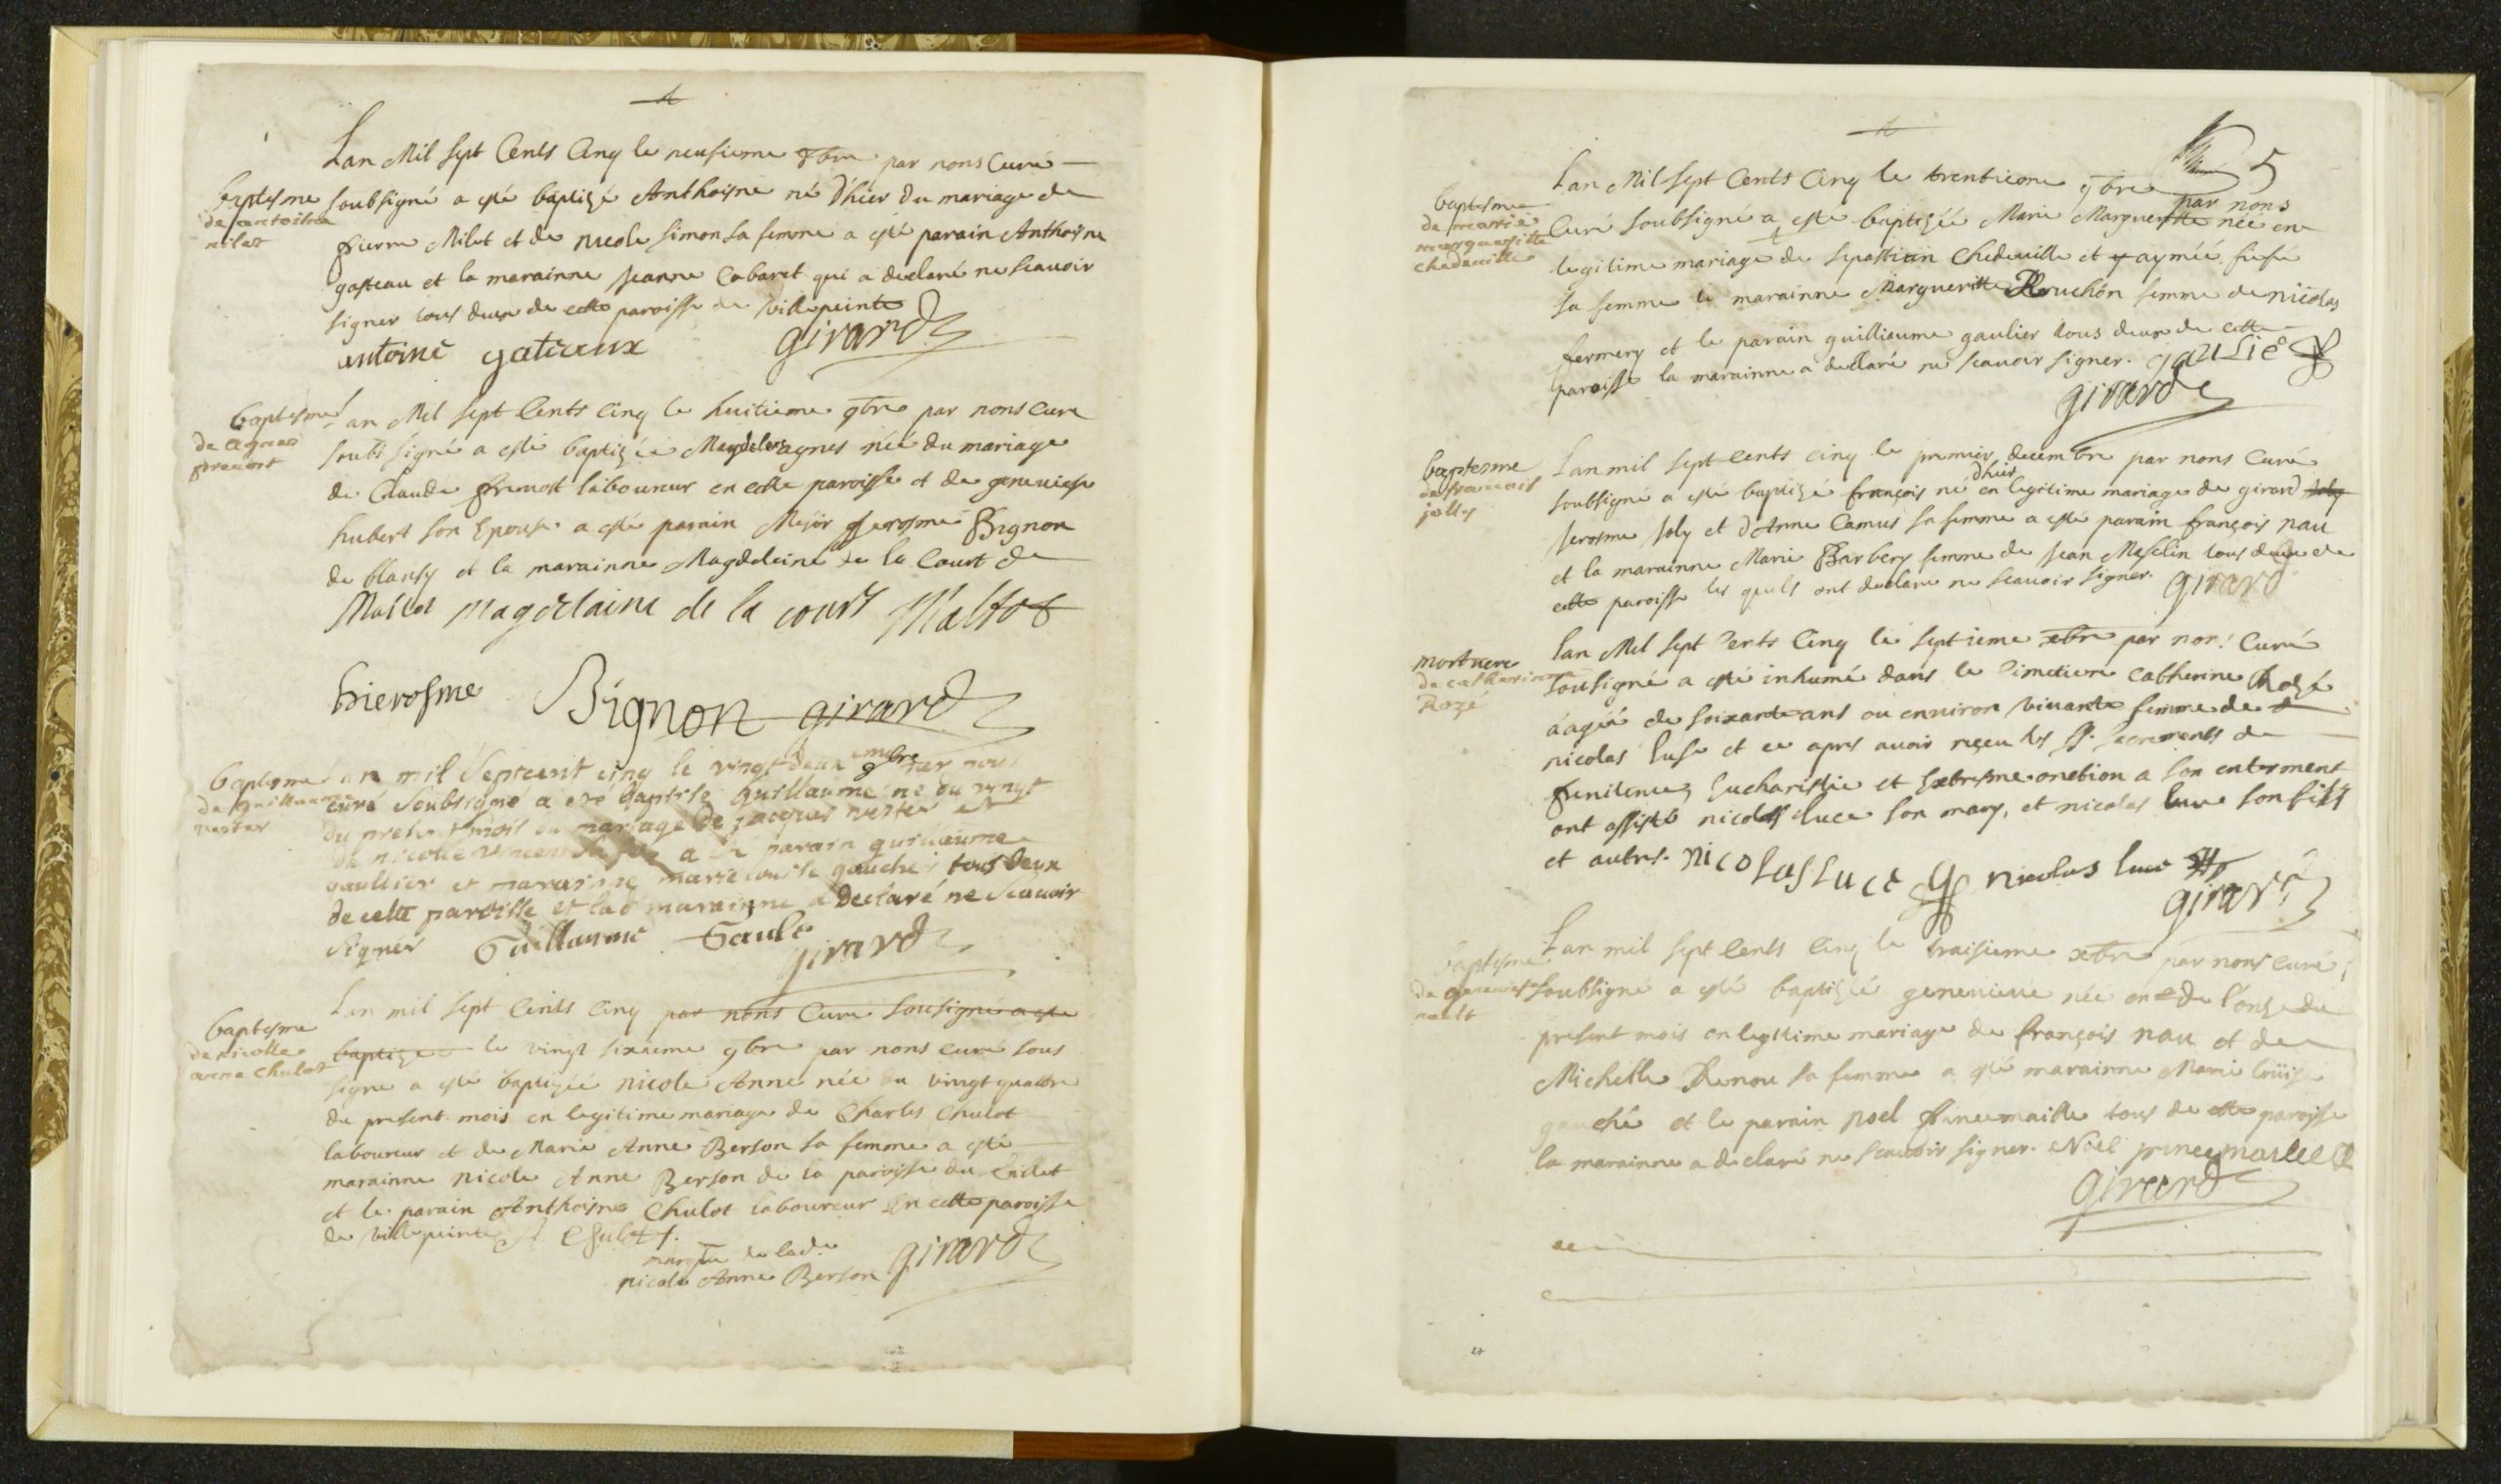 Lan Mil sept Cents Cinq le neufieme 9bre par nous Curé
baptesme
de antoine
milet
soubsigné a esté baptizé Anthoisne né d'hier du mariage de
pierre Milet et de nicole simon sa femme a esté parain Anthoisne
gasteau et la marainne Jeanne Cabaret qui a declaré ne scavoir
signer tous deux de cette paroisse de villepeinte
antoine gateaux girard
baptesme
de agnes
premost
Lan Mil sept Cents Cinq le huitieme 9bre par nous Cure
soubs signé a esté baptizée Magdelene agnes née du mariage
de Claude premost laboureur en cette paroisse et de genevieve
hubert son Epouse a esté parain Mesir hierosme Bignon
de blansy et la marainne Magdeleine de la Court de
Mallot magdelaine de la court Mallot
hierosme Bignon girard
baptesme
de guillaume
Lan mil Septcent cinq le vingt deux 9bre par nous
curé Soubsigné a esté baptisé guillaume né du vingt
du present mois du mariage de jacques
de nicolle vincent sa a parain guillaume
gaultier et marainne marie louise gauchei tous deux
de cette paroisse et lad marainne a declaré ne Scavoir
signer Guillaume Gaulte girard
baptesme
de nicolle
anne chulot
Lan mil sept Cents Cinq par nous Curé sousigné a esté
baptizee le vingt sixieme 9bre par nous curé sous
signé a esté baptizéé nicole Anne née du vingt quattre
du present mois en legitime mariage de Charles Chulot
laboureur et de Marie Anne Berson sa femme a esté
marainne nicole Anne Berson de la paroisse du
et le parain Anthoisne Chulot laboureur En cette paroisse
de villepeinte A. Chulot
marque de lade
nicole Anne Berson girard
5
Lan Mil sept Cents Cinq le trentieme 9bre
par nous
baptesme
de marie
margueritte
chedeuille
Curé soubsigné a esté baptizéé Marie Marguerite néé en
legitime mariage de sepastien Chedeuille et ayméé
sa femme la marainne Margueritte Rouchon femme de nicolas
fermery et le parain guilliaume gaulier tous deux de cette
paroisse la marainne a declaré ne scavoir signer. gaulié
girard
baptesme
de francois
jolly
Lan mil sept cents cinq le premier decembre par nous Curé
d'hier
soubsigné a esté baptizé françois né en legitime mariage de girard Joly
Jerosme Joly et d'Anne Camus sa femme a esté parain françois nau
et la marainne Marie Barbery femme de Jean Meslin tous deux de
cette paroisse les quels ont declaré ne scavoir signer. girard
mortuere
de catherinne
Rozé
Lan Mil sept Cents Cinq le septieme xbre par nous Curé
sousigné a esté inhumé dans le Cimetiere Catherine Rozé
aagéé de soixante ans ou environ vivante femme de
nicolas luse et ce apres avoir reçeu les Sts. sacrements de
penitence, Eucharistie et Extresme onction a son enterment
ont assisté nicolas luce son mary, et nicolas luce son fils
et autres. nicolas luce nicolas luce
girard
baptesme
de genevieve
nault
Lan mil sept cents Cinq le traisieme xbre par nous curé
soubsigné a esté baptizéé genevieve née de l'onze du
present mois en legitime mariage de françois nau et de
Michelle Renou sa femme a esté marainne Marie loüise
gauché et le parain noel princemaille tous de cette paroisse
la marainne a declaré ne scavoir signer. Noel princemaille
girard